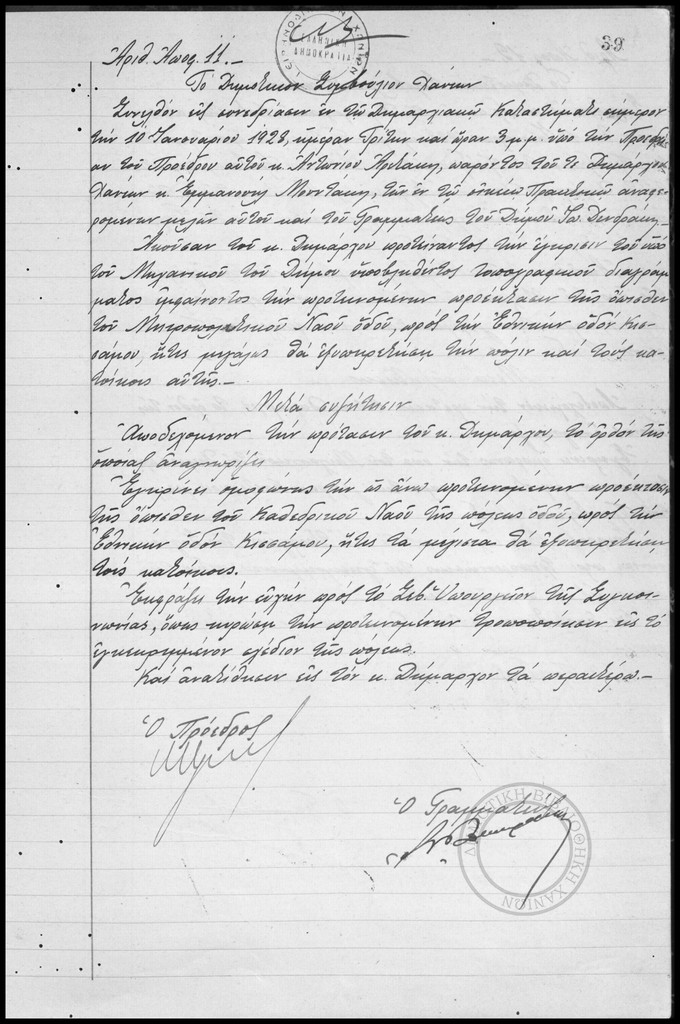 39
ΕΙΡΗΝΟΔΙΚΕΙΟΝ ΧΑΝΙΩΝ
ΕΛΛΗΝΙΚΗ
ΔΗΜΟΚΡΑΤΙΑ
Ἀριθ. Ἀποφ. 11.
Τὸ Δημοτικὸν Συμβούλιον Χανίων
Συνελθὸν εἰς συνεδρίασιν ἐν τῷ Δημαρχιακῷ Καταστήματι σήμερον
τὴν 10 Ἰανουαρίου 1928, ἡμέραν Τρίτην καὶ ὥραν 3 μ.μ. ὑπὸ τὴν Προεδρεί
αν τοῦ Προέδρου αὐτοῦ κ. Ἀντωνίου, παρόντος τοῦ τε Δημάρχου
Χανίων κ. Ἐμμανουὴλ Μουντάκη, τῶν ἐν τῷ οἰκείῳ Πρακτικῷ ἀναφε-
ρομένων μελῶν αὐτοῦ καὶ τοῦ Γραμματέως τοῦ Δήμου Ἰω. Δενδράκη.
Ἀκοῦσαν τοῦ κ. Δημάρχου προτείναντος τὴν ἔγκρισιν τοῦ ὑπὸ
τοῦ Μηχανικοῦ τοῦ Δήμου ὑποβληθέντος τοπογραφικοῦ διαγράμ-
ματος ἐμφαίνοντος τὴν προτεινομένην προέκτασιν τῆς ὄπισθεν
τοῦ Μητροπολιτικοῦ Ναοῦ ὁδοῦ, πρὸς τὴν Ἐθνικὴν ὁδὸν Κισ-
σάμου, ἥτις μεγάλως θὰ ἐξυπηρετήσῃ τὴν πόλιν καὶ τοὺς κα-
τοίκους αὐτῆς.—
Μετὰ συζήτησιν
Ἀποδεχόμενον τὴν πρότασιν τοῦ κ. Δημάρχου, τὸ ὀρθὸν τῆς
ὁποίας ἀναγνωρίζει
Ἐγκρίνει ὁμοφώνως τὴν ὡς ἄνω προτεινομένην προέκτασιν
τῆς ὄπισθεν τοῦ Καθεδρικοῦ Ναοῦ τῆς πόλεως ὁδοῦ, πρὸς τὴν
Ἐθνικὴν ὁδὸν Κισσάμου, ἥτις τὰ μέγιστα θὰ ἐξυπηρετήσῃ
τοὺς κατοίκους.
Ἐκφράζει τὴν εὐχὴν πρὸς τὸ Σεβ. Ὑπουργεῖον τῆς Συγκοι-
νωνίας, ὅπως κυρώσῃ τὴν προτεινομένην τροποποίησιν εἰς τὸ
ἐγκεκριμμένον σχέδιον τῆς πόλεως.
Καὶ ἀνατίθησιν εἰς τὸν κ. Δήμαρχον τὰ περαιτέρω.—
Ὁ Πρόεδρος
Ὁ Γραμματεὺς
ΔΗΜΟΤΙΚΗ ΒΙΒΛΙΟΘΗΚΗ ΧΑΝΙΩΝ